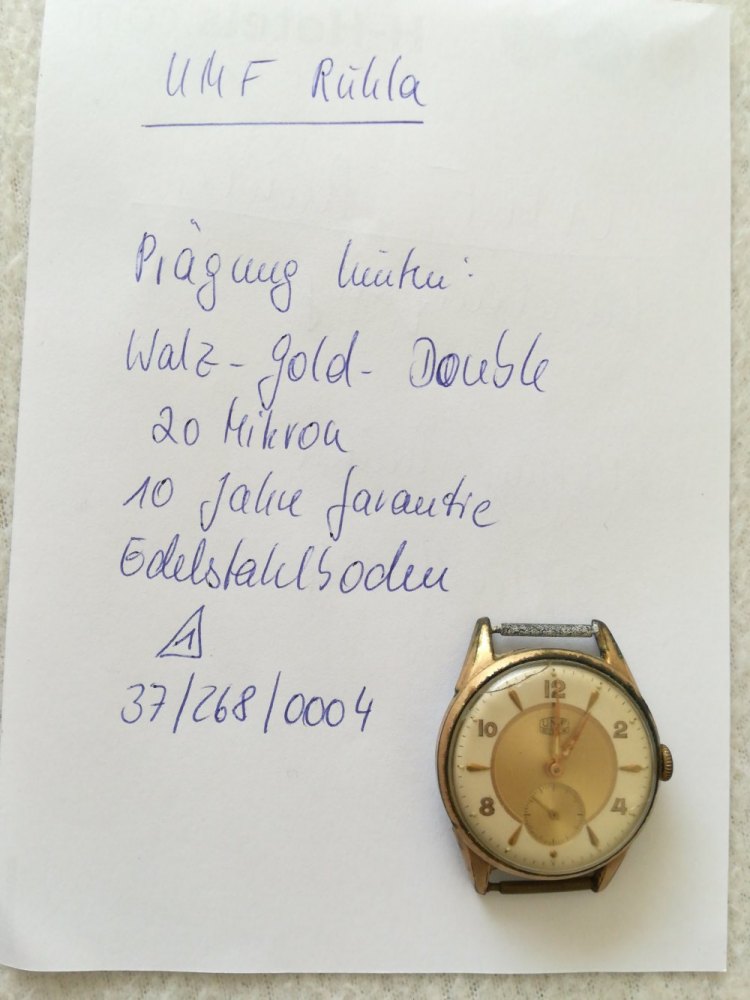 UMF Ruhla
Prägung hinten:
Walz-Gold-Double
20 Mikron
10 Jahre Garantie
Edelstahlboden
1
37/268/0004
12
10 2
8 4